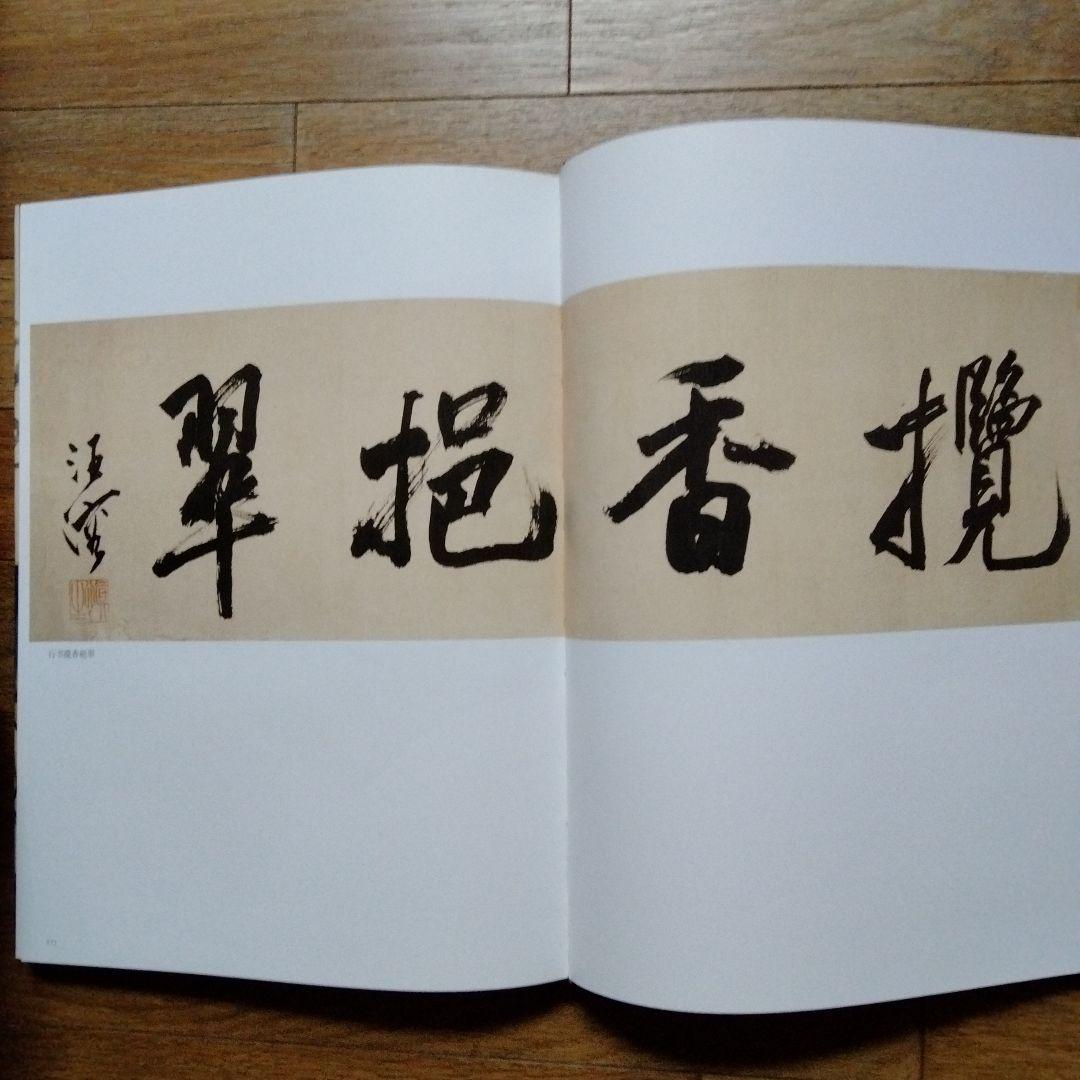 攬香挹翠
汪
行书攬香挹翠